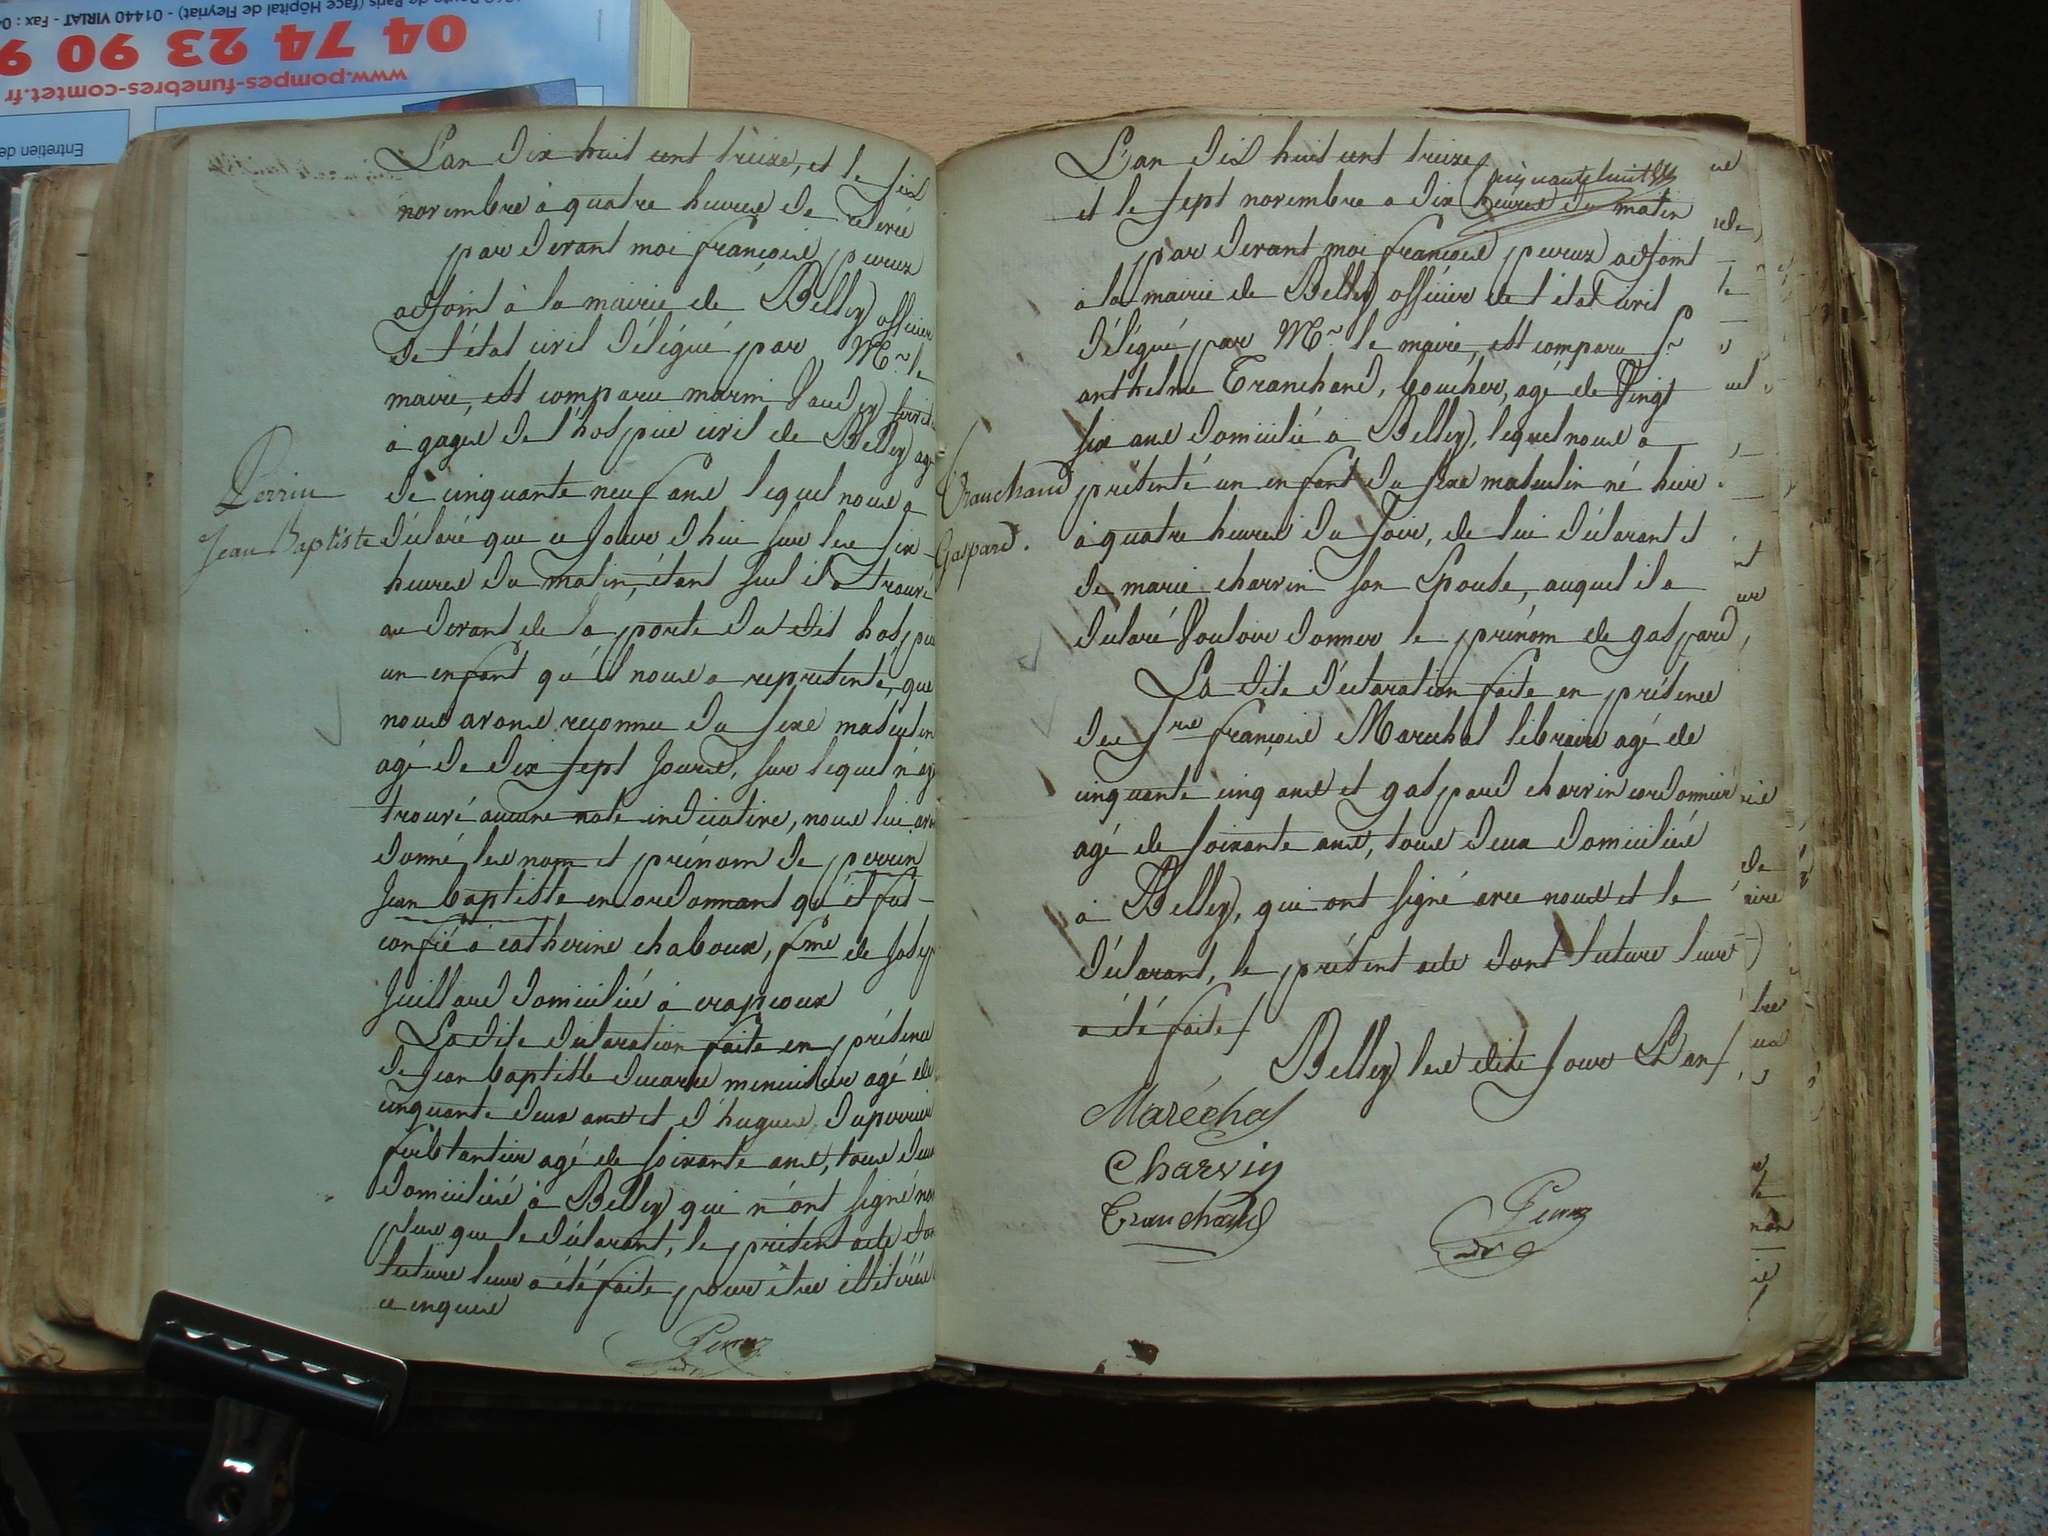 01440 VIRIAT - Fax : 04
(face Hôpital de Fleyriat) -
04 74 23 90 9
www.pompes-funebres-comtet.fr
Entretien de
L'an dix huit cent treize, et le six
novembre à quatre heures de relevée
par devant moi françois peruz
adjoint à la mairie de Belley officier
de l'état civil délégué par Mr. le
maire, est comparu marin Vaudey
à gages de l'hospice civil de Belley agé
de cinquante neuf ans lequel nous a
Perrin
Jean Baptiste
déclaré que ce jour d'hui sur les six
heures du matin, étant seul il a trouvé
au devant de la porte du dit hospice
un enfant qu'il nous a représenté, que
nous avons reconnu du sexe masculin
agé de dix sept jours, sur lequel n'ayt
trouvé aucune note indicative, nous lui avons
donné les nom et prénom de perrin
jean baptiste en ordonnant qu'il fut
confié à catherine chaboux, fme de Joseph
Juillard domicilié à crapeoux
La dite déclaration faite en présence
de Jean baptiste ducarre menuisier agé de
cinquante deux ans et d'hugues duperrier
substantier agé de soixante ans, tous deux
domiciliés à Belley qui n'ont signé non
plus que le déclarant, le présent acte dont
lecture leur a été faite pour être illitérés
ce enquis
L'an dix huit cent treize
et le sept novembre a dix heures du matin
par devant moi françois peruz adjoint
à la mairie de Belley officier de l'état civil
délégué par Mr. le maire, est comparu Sr
anthelme Tranchand, boucher, agé de vingt
six ans domicilié à Belley, lequel nous a
Tranchand
Gaspard.
présenté un enfant du sexe masculin né hier
à quatre heures du soir, de lui déclarant et
de marie charvin son Epouse, auquel il a
déclaré vouloir donner le prénom de gaspard,
La dite déclaration faite en présence
des Srs françois Marechal libraire agé de
cinquante cinq ans et gaspard charvin cordonnier
agé de soixante ans, tous deux domiciliés
à Belley, qui ont signé avec nous et le
déclarant, le présent acte dont lecture leur
a été faite /
Belley les dits jour L'an /
Maréchal
Charvin
Tranchand
Peruz